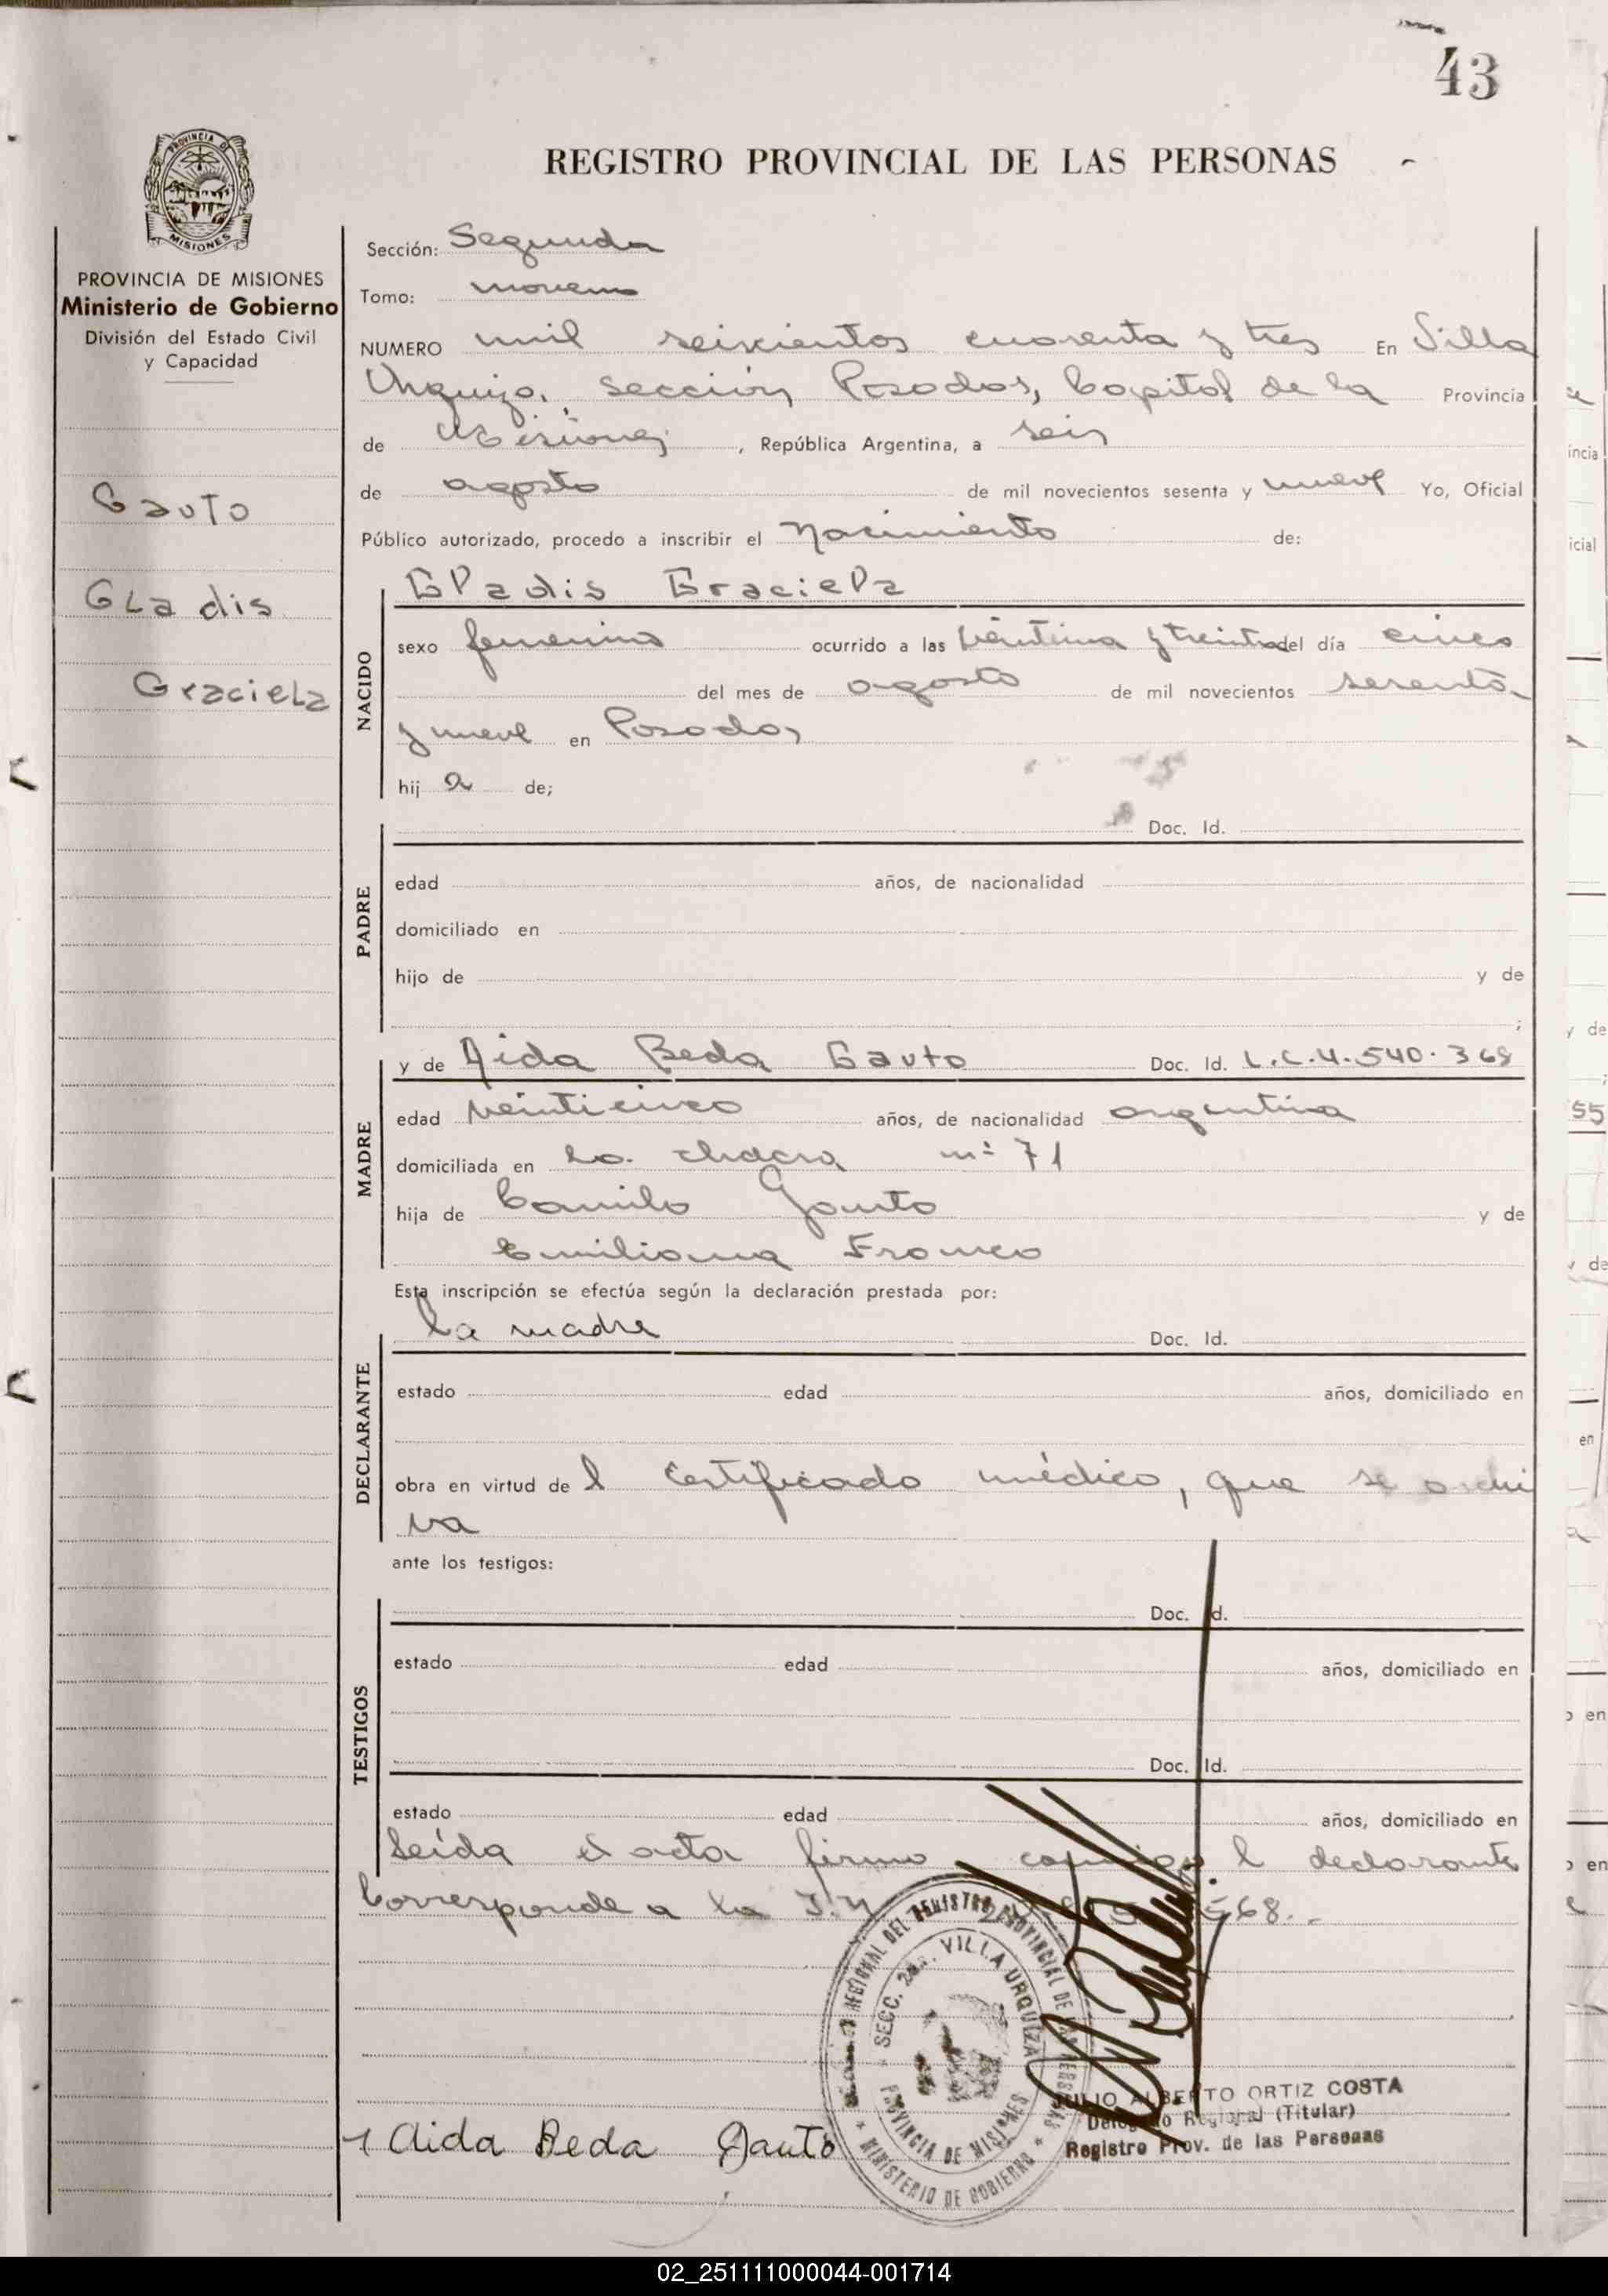 43
REGISTRO PROVINCIAL DE LAS PERSONAS
PROVINCIA DE MISIONES
PROVINCIA DE MISIONES
Ministerio de Gobierno
División del Estado Civil
y Capacidad
Gauto
GLadis
GracieLa
Sección: Segunda
Tomo: noveno
NUMERO mil seiscientos cuarenta y tres En Villa
Urquiza, Sección Posadas, Capital de la Provincia
de Misiones, República Argentina, a seis
de agosto de mil novecientos sesenta y nueve Yo, Oficial
Público autorizado, procedo a inscribir el nacimiento de:
NACIDO
Gladis Graciela
sexo femenino ocurrido a las veintiuna y treinta del día cinco
del mes de agosto de mil novecientos sesenta
y nueve en Posadas
hij a de;
PADRE
Doc. Id.
edad años, de nacionalidad
domiciliado en
hijo de y de
;
MADRE
y de Aida Beda Gauto Doc. Id. L.C.4.540.368
edad veinticinco años, de nacionalidad argentina
domiciliada en la chacra nº 71
hija de Camilo Gauto y de
Emiliana Franco
Esta inscripción se efectúa según la declaración prestada por:
DECLARANTE
la madre Doc. Id.
estado edad años, domiciliado en
obra en virtud de l certificado médico, que se archi
va
ante los testigos:
TESTIGOS
Doc. Id.
estado edad años, domiciliado en
Doc. Id.
estado edad años, domiciliado en
Leída el acta firma conmigo l declarante
Corresponde a la 568.-
REGIONAL DEL REGISTRO PROVINCIAL DE LAS PERSONAS
SECC. 2da. VILLA URQUIZA
PROVINCIA DE MISIONES
* MINISTERIO DE GOBIERNO *
JULIO ALBERTO ORTIZ COSTA
Delegado Regional (Titular)
Registro Prov. de las Personas
Aida Beda Gauto
02_251111000044-001714